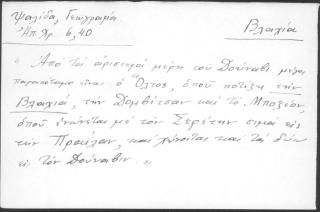 Ψαλίδα, Γεωγραφία
Ἠπ. Χρ. 6, 40
Βλαχία
« Ἀπὸ τὰ ἀριστερὰ μέρη τοῦ Δούναβι μέγας
παραπόταμος εἶναι ὁ Ὄλτος, ὁποῦ ποτίζει τὴν
Βλαχίαν, τὴν Δομβίτσαν καὶ τὸ
ὁποῦ ἑνώνεται μὲ τὸν Σερέτην σιμὰ εἰς
τὴν Πραΐλαν, καὶ χύνονται καὶ τὰ δύω
εἰς τὸν Δούναβιν. »